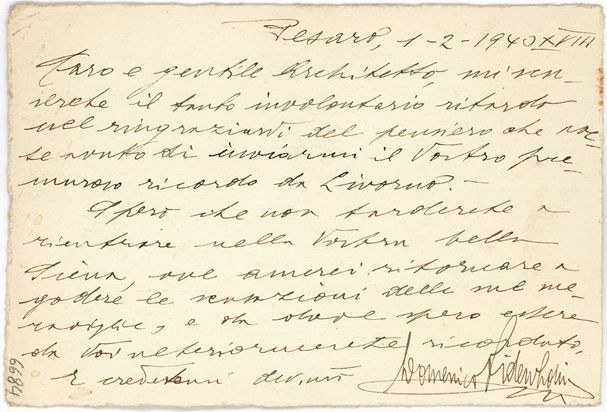 Pesaro, 1-2-1940 XVIII
Caro e gentile Architetto, mi scu-
serete il tanto involontario ritardo
nel ringraziarvi del pensiero che vo-
te avuto di inviarmi il Vostro pre-
muroso ricordo da Livorno.-
Spero che non tarderete a
rientrare nella Vostra bella
Siena, ove amerei ritornare a
godere le sensazioni delle sue me-
raviglie, e da dove spero essere
da Voi ulteriormente ricordato,
E credetemi dev.mo Domenico
6684